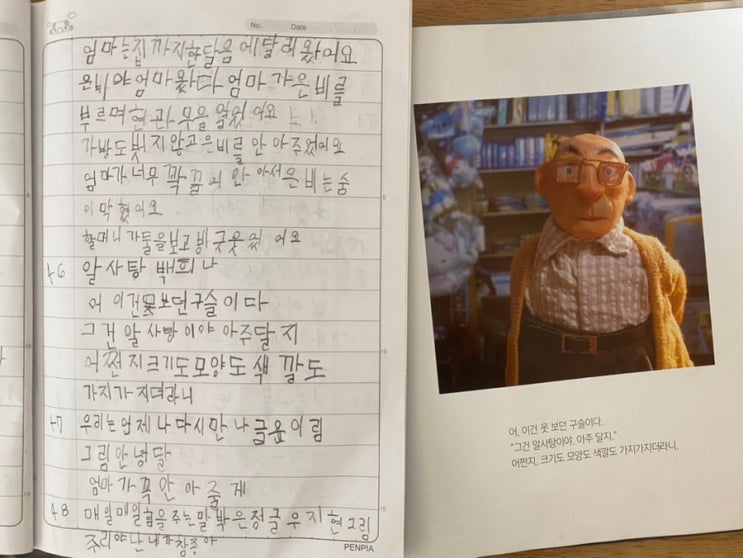 No. Date
엄마는집 까지한달음 에달려왔어요
은비야엄마왔다 엄마 가은비를
부르며현관 무을 열었어요
가방도벗지않고은비를 안아주었어요
엄마가너무 꽉 껴 안아서은비는숨
이 막혔어요
할머니가둘을보고빙긋웃었어요
46 알사탕 백희나
어 이건못보던구슬이다
그건 알사탕이야 아주달지
어쩐지크기도모양도색깔도
가지가지더라니
47 우리는언제나다시만나글윤여림
그림안녕달
엄마가꼭안아줄게
48 매일매일힘을주는말 박은정글우지현그림
주리야난내가참좋아
PENPIA
어, 이건 못 보던 구슬이다.
“그건 알사탕이야. 아주 달지.”
어쩐지. 크기도 모양도 색깔도 가지가지더라니.